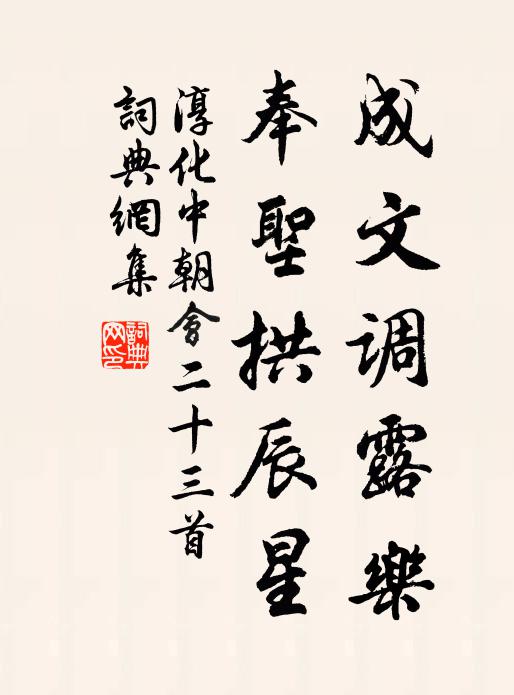 成文调露樂
奉聖拱辰星
淳化中朝會二十三首
詞典網集
詞典
网印